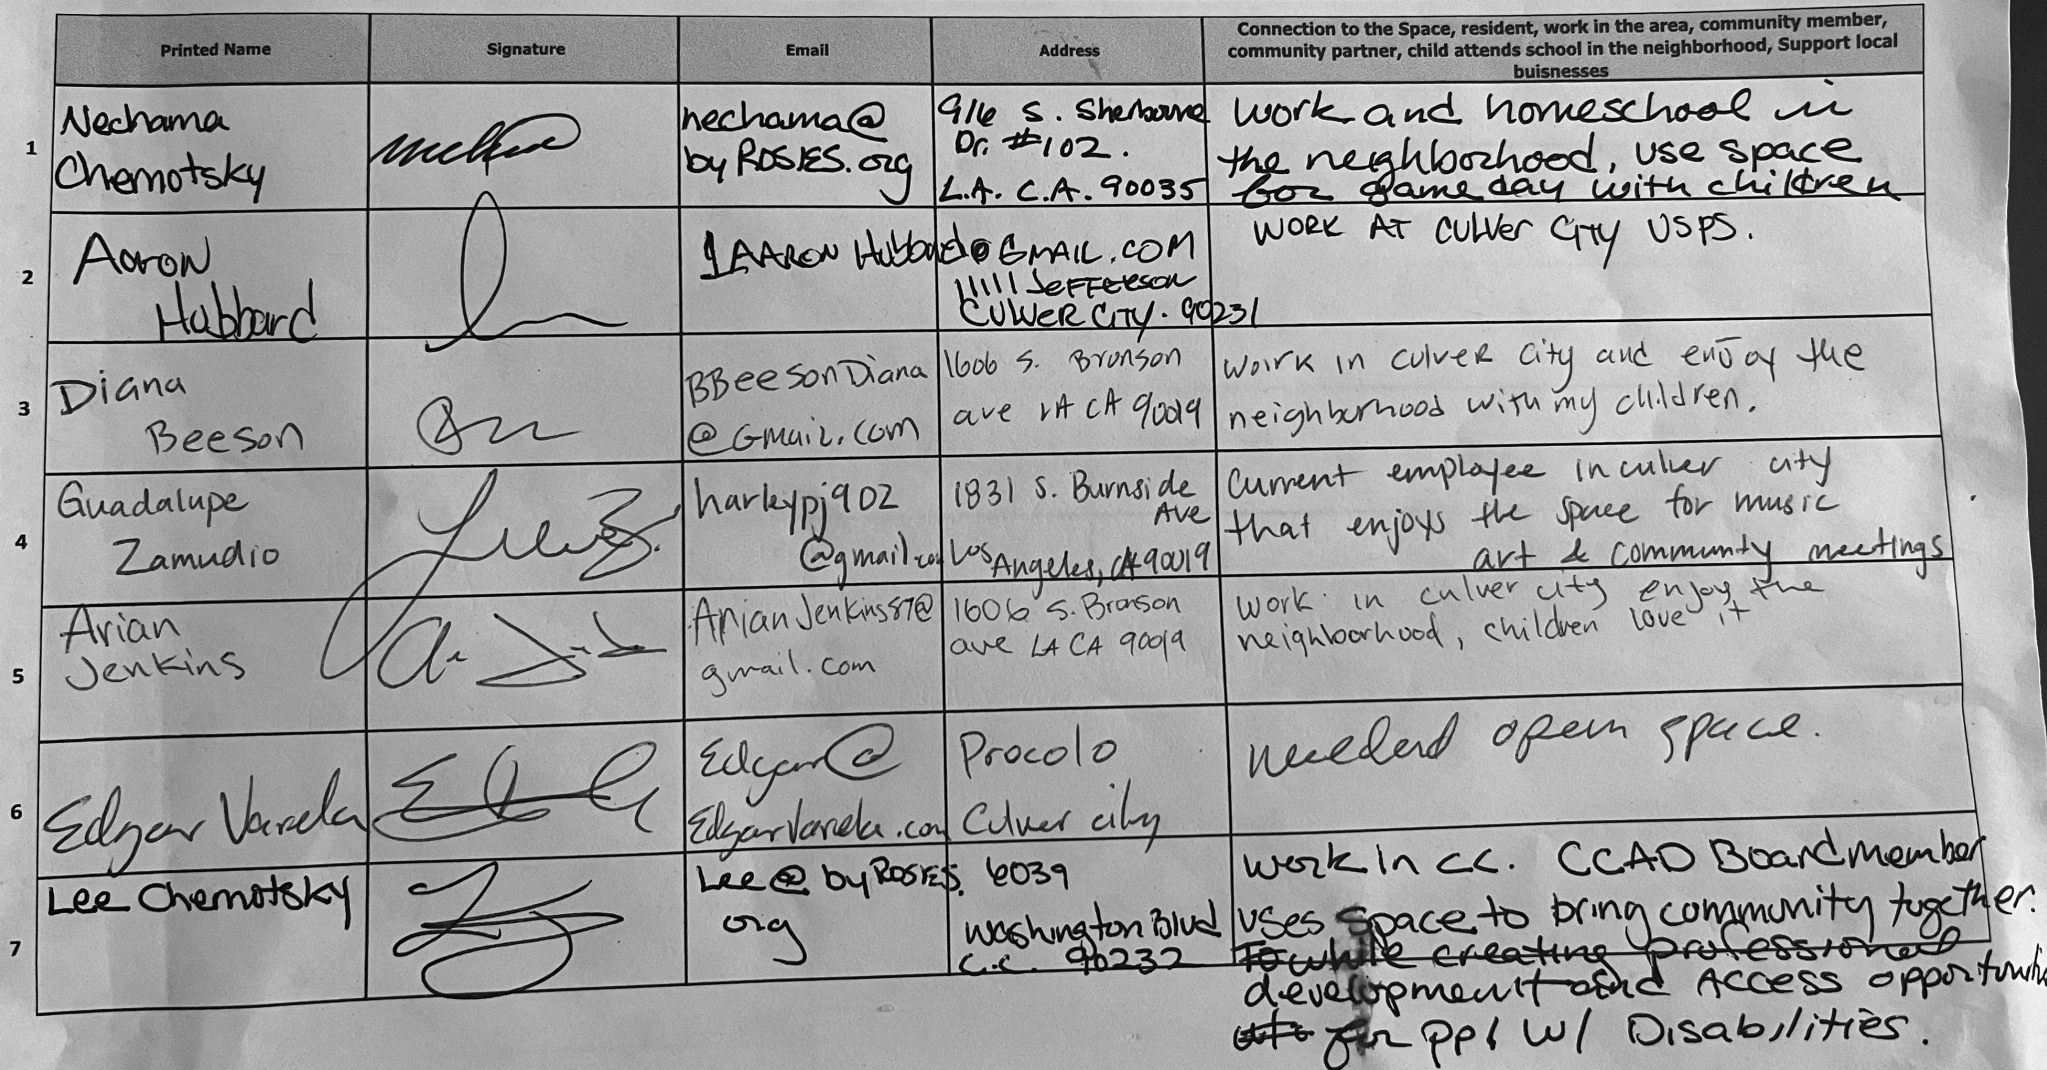 Printed Name
Signature
Email
Address
Connection to the Space, resident, work in the area, community member,
community partner, child attends school in the neighborhood, Support local
buisnesses
1
Nechama
Chemotsky
nechama@
by ROSIES.org
916 S. Sherbourne
Dr. #102.
L.A. C.A. 90035
work and homeschool in
the neighborhood, use space
for gameday with children
2
Aaron
Hubbard
1AARON Hubbard@GMAIL.COM
11111 JEFFERSON
CULVER CITY. 90231
WORK AT CULVER CITY USPS.
3
Diana
Beeson
BBeesonDiana
@Gmail.com
1606 S. Bronson
ave LA CA 90019
work in culver city and enjoy the
neighburhood with my children.
4
Guadalupe
Zamudio
harleypj902
@gmail.com
1831 S. Burnside
Ave
Los Angeles, CA 90019
Current employee in culver city
that enjoys the space for music
art & community meetings
5
Arian
Jenkins
ArianJenkins87@
gmail.com
1606 S. Bronson
ave LA CA 90019
work in culver city enjoy the
neighborhood, children love it
6
Edgar Varela
Edgar@
EdgarVarela.com
Procolo
Culver city
needed open space.
7
Lee Chemotsky
Lee@byROSIES.
org
6039
Washington Blvd
C.C. 90232
work in CC. CCAD Boardmember
uses space to bring community together.
To while creating professional
development and Access opportunities
for ppl w/ Disabilities.